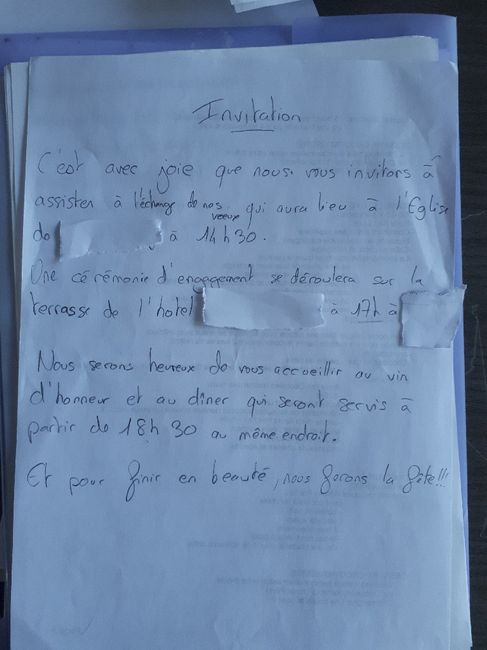 Invitation
C'est avec joie que nous vous invitons à
assister à l'échange de nos voeux qui aura lieu à l'Eglise
de à 14h30.
Une cérémonie d'engagement se déroulera sur la
terrasse de l'hotel à 17h à
Nous serons heureux de vous accueillir au vin
d'honneur et au dîner qui seront servis à
partir de 18h30 au même endroit.
Et pour finir en beauté, nous ferons la fête!!!